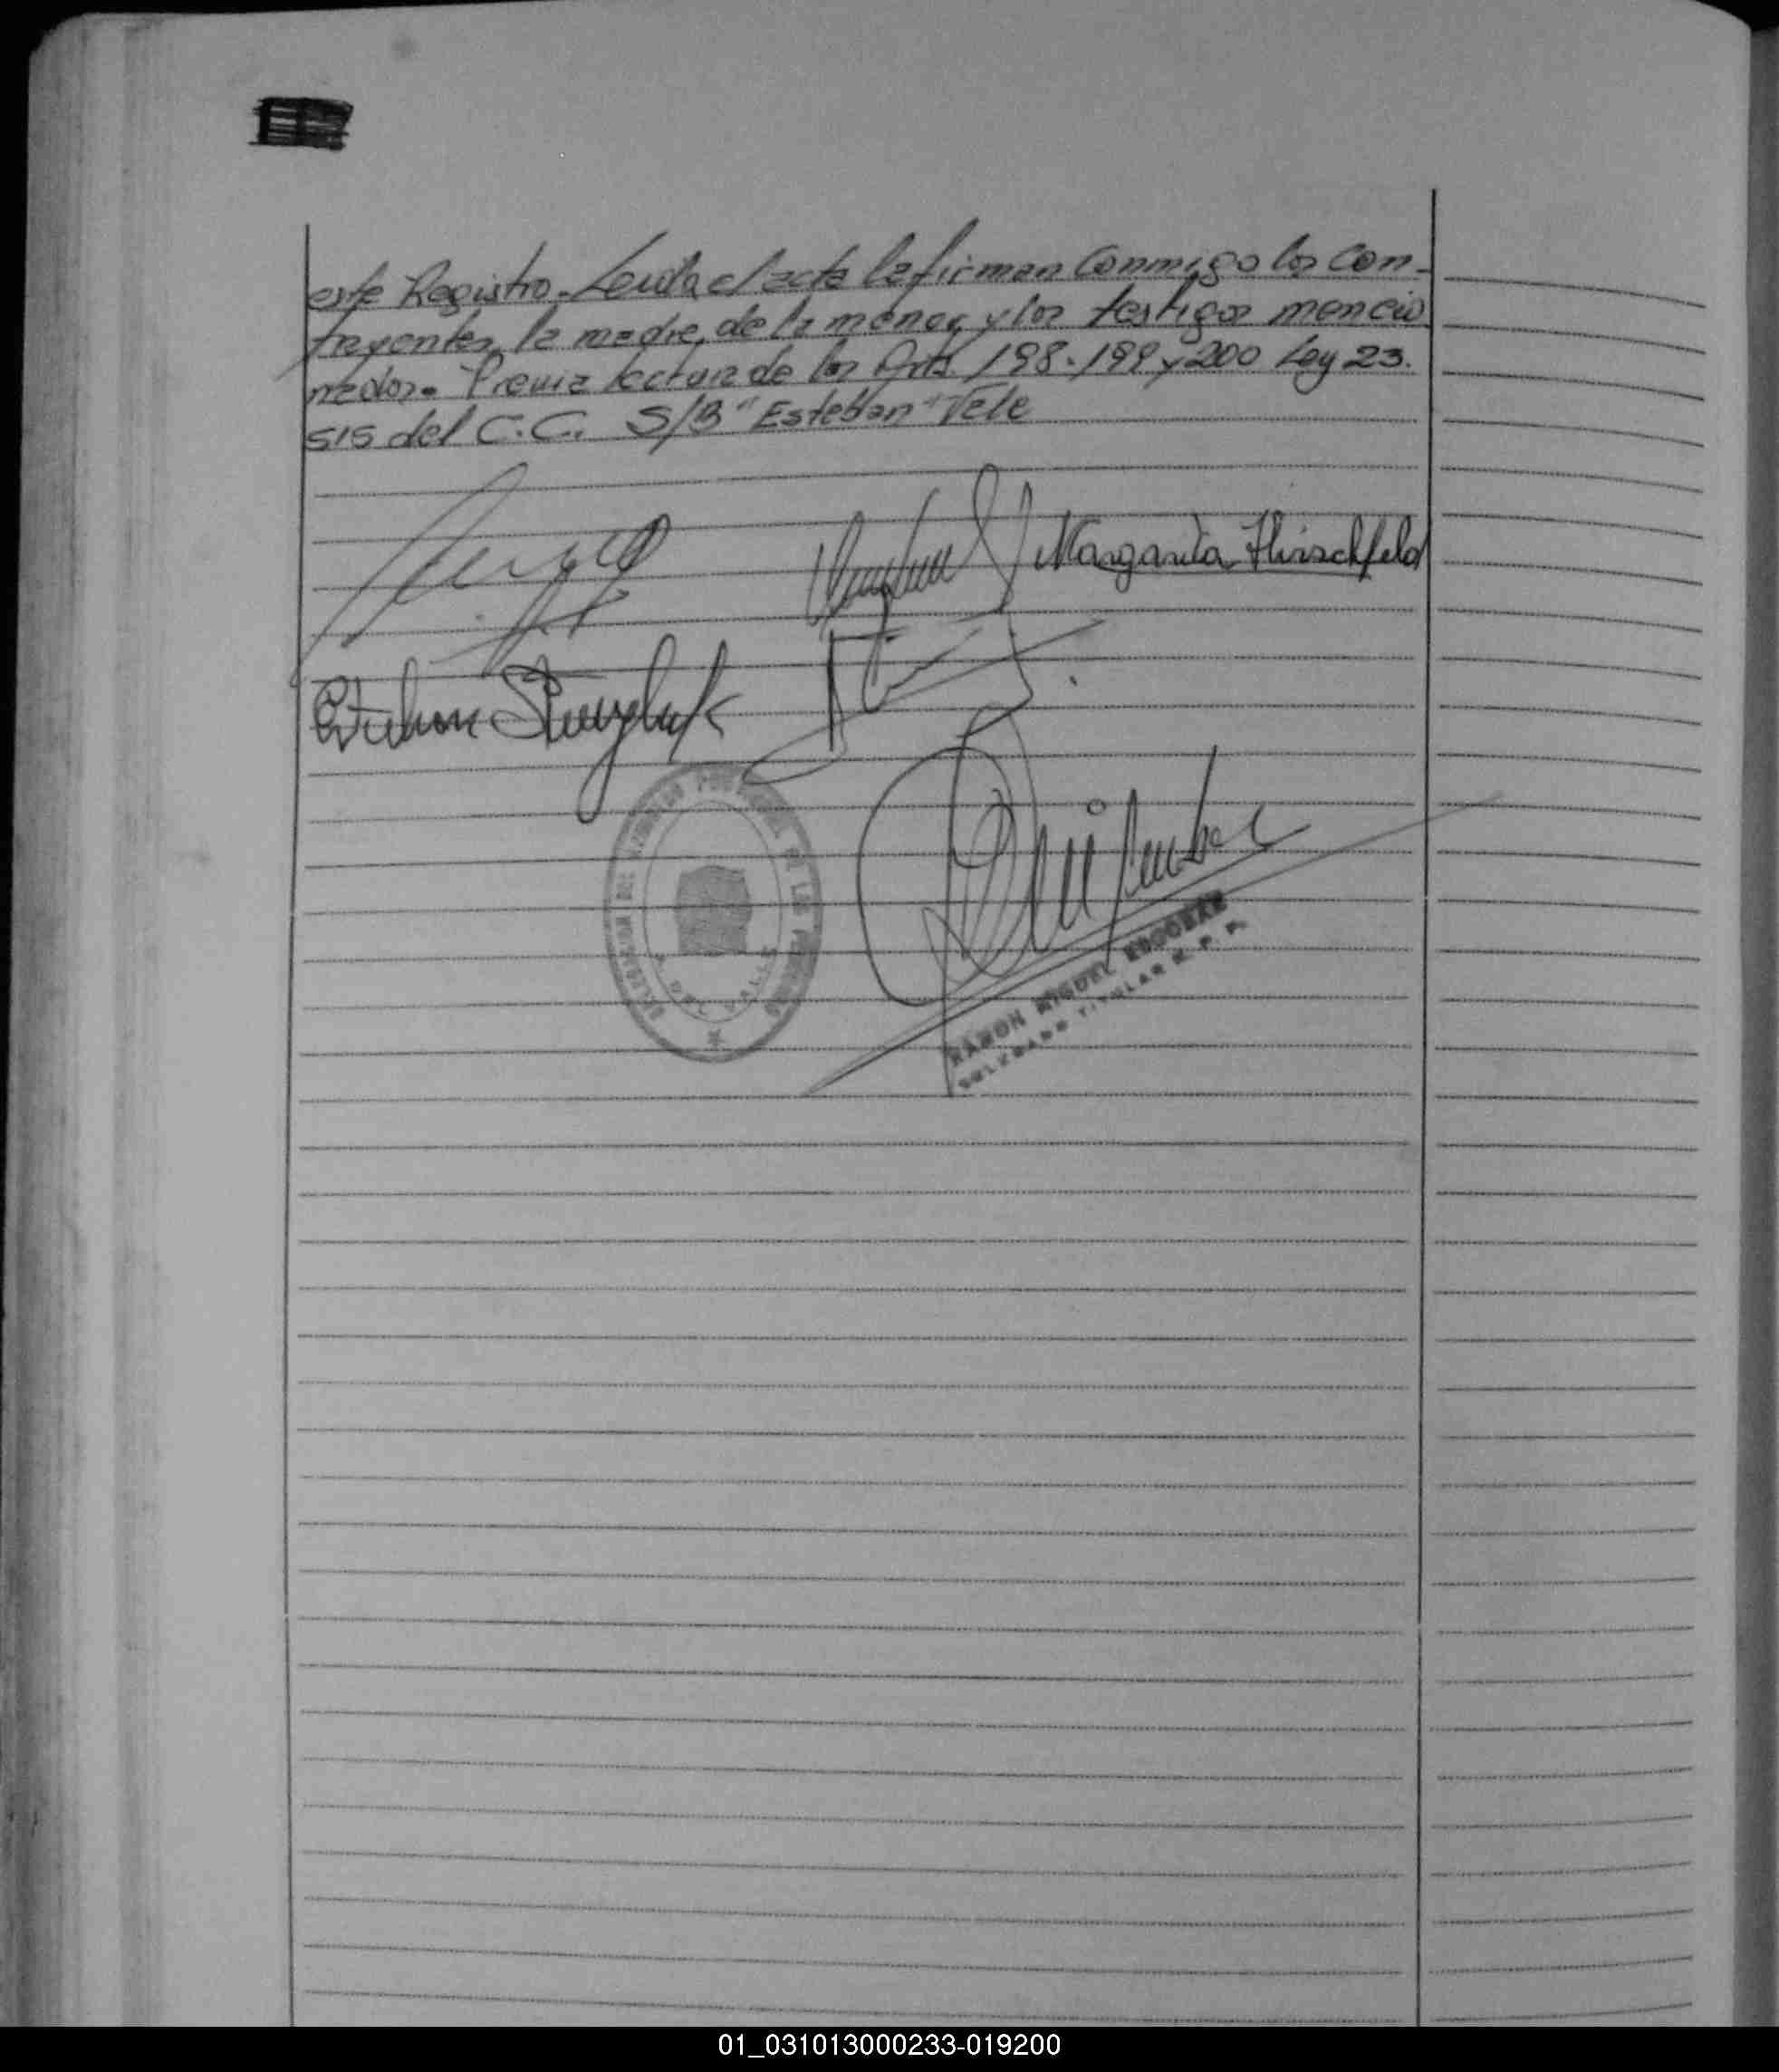 este Registro. Leída el acta la firman conmigo los con-
trayentes, la madre de la menor, y los testigos mencio
nados. Previa lectura de los Arts. 198-199 y 200 Ley 23.
515 del C.C. S/B "Esteban" Vale
Margarita Hirschfeld
Esteban
DELEGACION DEL REGISTRO PROVINCIAL DE LAS PERSONAS
RAMON MIGUEL ESCOBAR
DELEGADO TITULAR R. P. P.
01_031013000233-019200